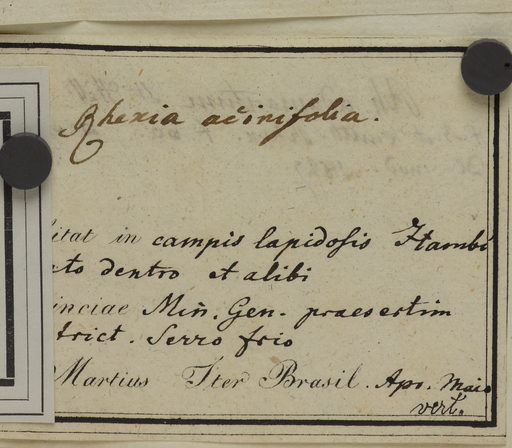 Rhexia acinifolia.
itat in campis lapidosis Itambé
to dentro et alibi
inciae Min. Gen. praesertim
trict. Serro frio
Martius Iter Brasil. Apr. Maio
vert.